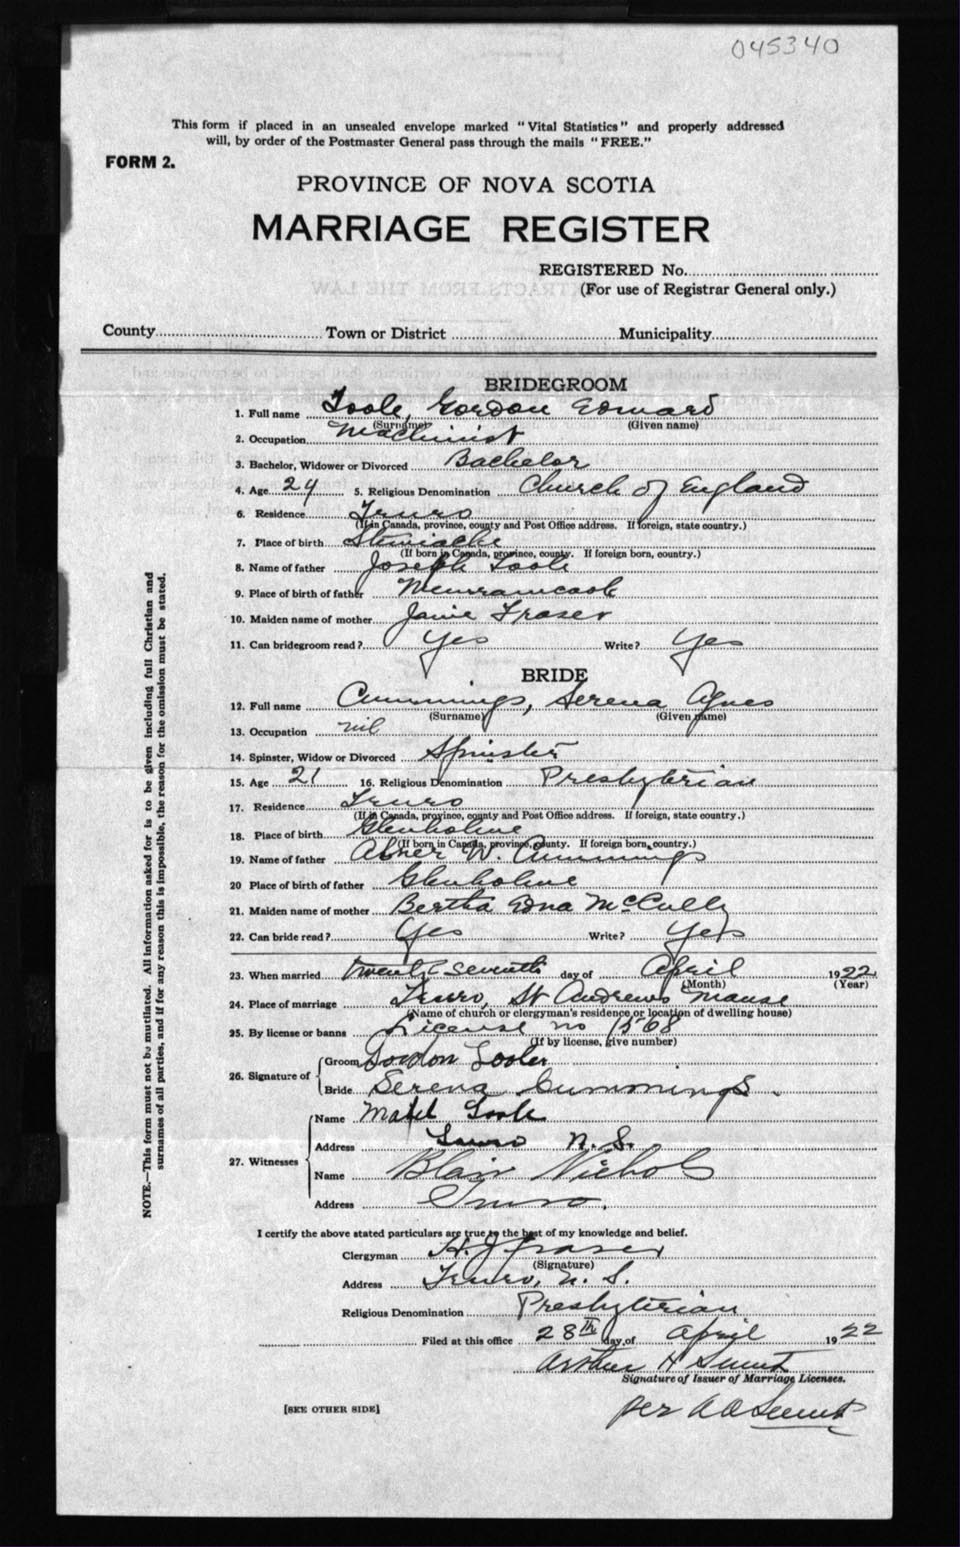 045340
This form if placed in an unsealed envelope marked "Vital Statistics" and properly addressed
will, by order of the Postmaster General pass through the mails "FREE."
FORM 2.
PROVINCE OF NOVA SCOTIA
MARRIAGE REGISTER
REGISTERED No.
(For use of Registrar General only.)
County Town or District Municipality
BRIDEGROOM
1. Full name Toole, Gordon Edward
(Surname) (Given name)
2. Occupation Machinist
3. Bachelor, Widower or Divorced Bachelor
4. Age 24 5. Religious Denomination Church of England
6. Residence Truro
(If in Canada, province, county and Post Office address. If foreign, state country.)
7. Place of birth Stewiacke
(If born in Canada, province, county. If foreign born, country.)
8. Name of father Joseph Toole
9. Place of birth of father Memramcook
10. Maiden name of mother Janie Fraser
11. Can bridegroom read? Yes Write? Yes
BRIDE
12. Full name Cummings, Serena Agnes
(Surname) (Given name)
13. Occupation nil
14. Spinster, Widow or Divorced Spinster
15. Age 21 16. Religious Denomination Presbyterian
17. Residence Truro
(If in Canada, province, county and Post Office address. If foreign, state country.)
18. Place of birth Glenholme
(If born in Canada, province, county. If foreign born, country.)
19. Name of father Abner W. Cummings
20 Place of birth of father Glenholme
21. Maiden name of mother Bertha Edna McCully
22. Can bride read? Yes Write? Yes
23. When married twenty seventh day of April 1922
(Month) (Year)
24. Place of marriage Truro, St Andrews Manse
(Name of church or clergyman's residence or location of dwelling house)
25. By license or banns License no 1568
(If by license, give number)
26. Signature of Groom Gordon
Bride Serena Cummings.
27. Witnesses Name Mabel Toole
Address Truro N. S.
Name Blair Nichols
Address Truro.
I certify the above stated particulars are true to the best of my knowledge and belief.
Clergyman H. J. Fraser
(Signature)
Address Truro, N. S.
Religious Denomination Presbyterian
Filed at this office 28th day of April 1922
Arthur H
Signature of Issuer of Marriage Licenses.
per
[SEE OTHER SIDE]
NOTE.—This form must not be mutilated. All information asked for is to be given including full Christian and
surnames of all parties, and if for any reason this is impossible, the reason for the omission must be stated.